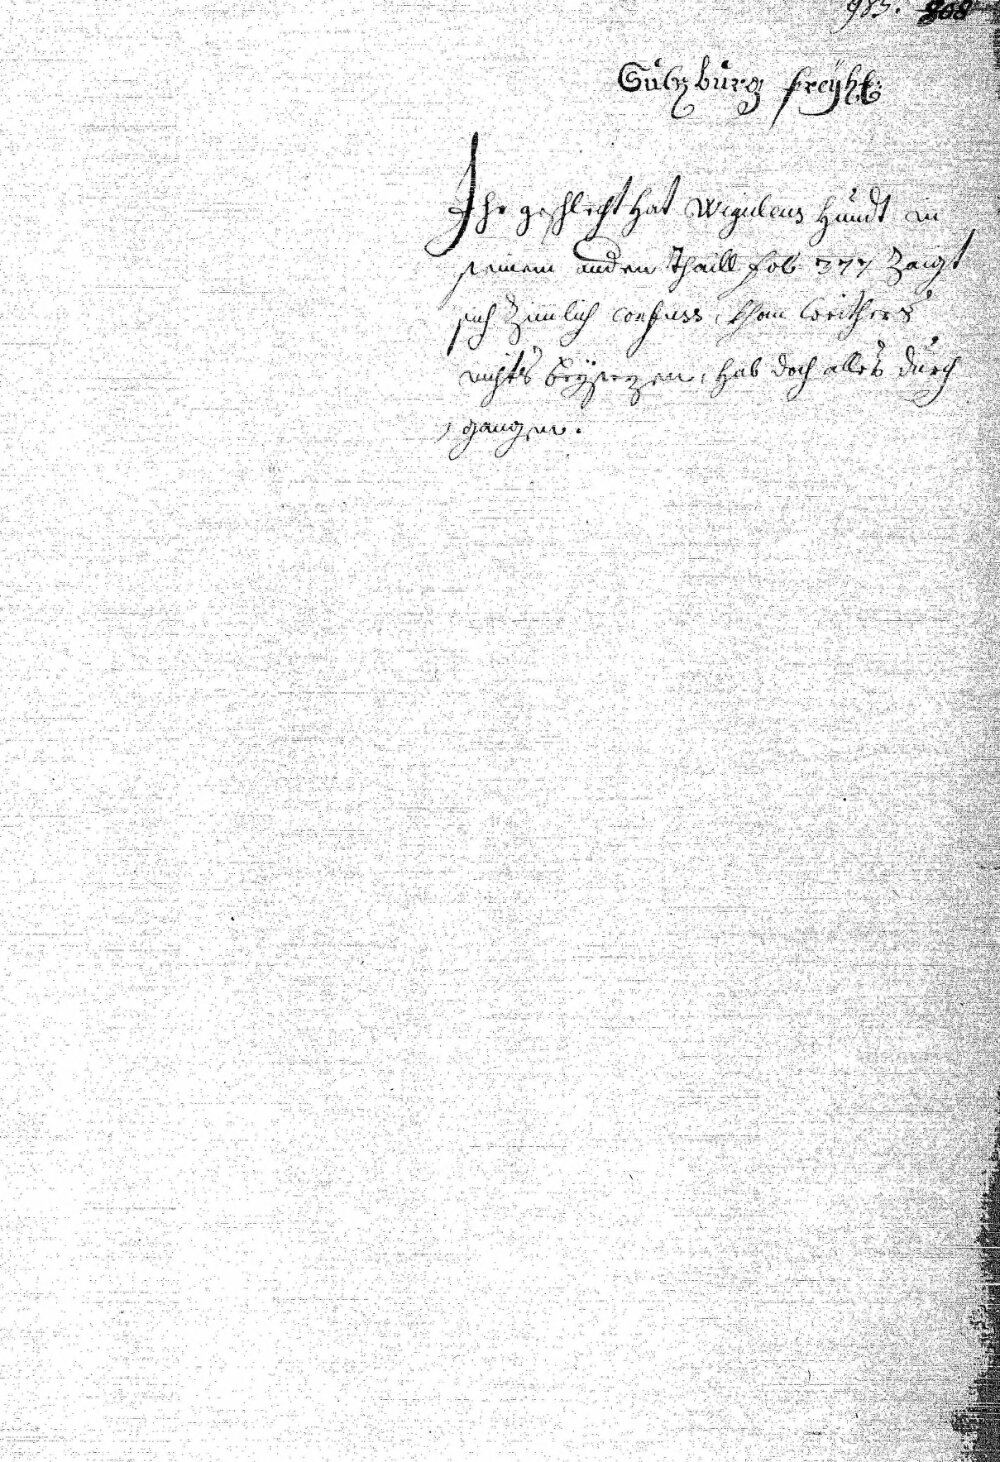 983. 808
Sulzburg freyh:
Ihr geschlecht hat Wiguleus Hundt in
seinem andern Thaill fol. 377 Zaigt
sich Zimlich confuss, Khan weithers
nichts beysezen, hab doch alles durch
gangen.